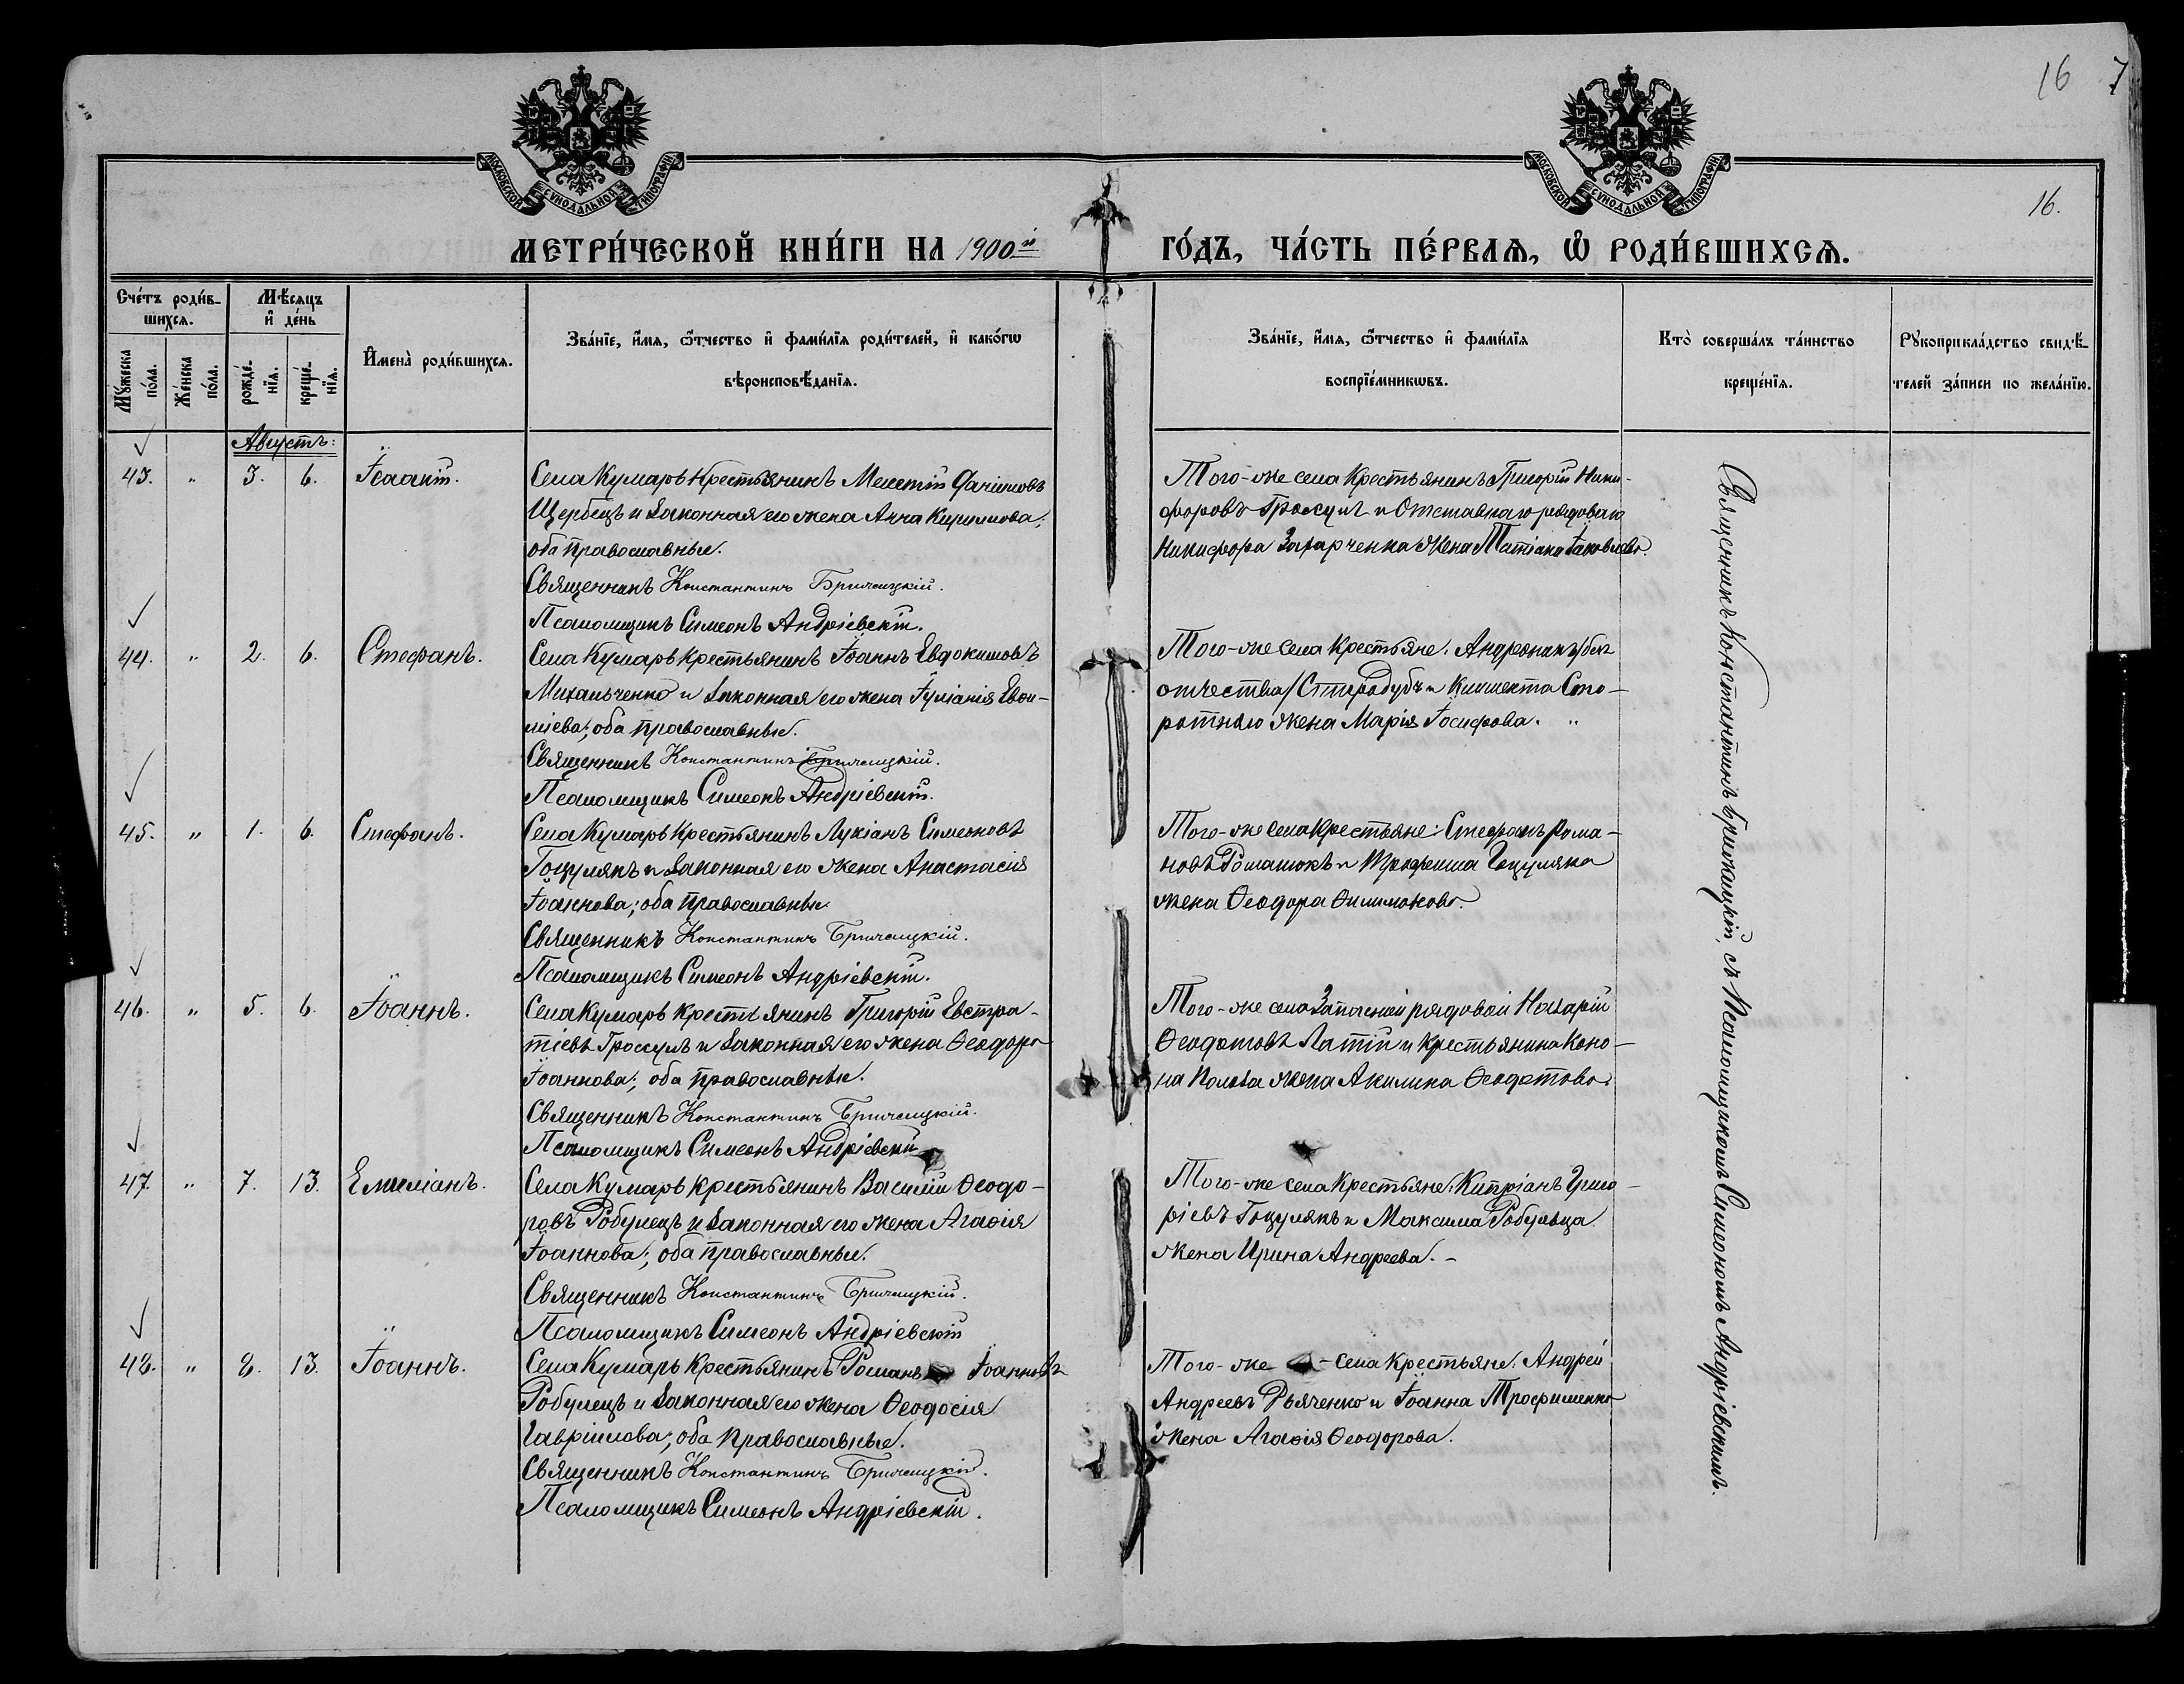 16 7
МОСКОВСКОЙ СѴНОДАЛЬНОЙ ТИПОГРАФІИ
МОСКОВСКОЙ СѴНОДАЛЬНОЙ ТИПОГРАФІИ
16.
МЕТРИ́ЧЕСКОЙ КНИ́ГИ НА 1900й ГО́ДЪ, ЧА́СТЬ ПЕ́РВАѦ, Ѡ҆ РОДИ́ВШИХСѦ.
Сче́тъ роди́в-
шихсѧ.
Мꙋ́жеска по́ла.
Же́нска по́ла.
Мѣ́сѧцъ
и҆ де́нь
рожде́-
нїѧ.
креще́-
нїѧ.
И҆мена̀ роди́вшихсѧ.
Зва́нїе, и҆́мѧ, ѻ҆́тчество и҆ фами́лїѧ роди́телей, и҆ како́гѡ
вѣроисповѣ́данїѧ.
Зва́нїе, и҆́мѧ, ѻ҆́тчество и҆ фами́лїѧ
воспрїе́мникѡвъ.
Кто̀ соверша́лъ та́инство
креще́нїѧ.
Рꙋкоприкла́дство свидѣ́-
телей за́писи по жела́нїю.
Августъ:
43. " 3. 6. Їсаакій.
Села Кумаръ крестьянинъ Мелетій Даніиловъ
Щербецъ и законная его жена Анна Кириллова;
оба православные.
Священникъ Константинъ
Псаломщикъ Симеонъ Андріевскій.
Того-же села крестьянинъ Григорій Ники-
форовъ Гроссулъ и Отставнаго рядоваго
Никифора Захарченка жена Татіана Іаковлева.
44. " 2. 6. Стефанъ.
Села Кумаръ крестьянинъ Іоаннъ Евдокимовъ
Михальченко и законная его жена Іуліанія Евѳи-
міева; оба православные.
Священникъ Константинъ
Псаломщикъ Симеонъ Андріевскій.
Того-же села крестьяне: Андроникъ /безъ
отчества/ Стародубъ и Сто-
ротняго жена Марія Іосифова. "
45. " 1. 6. Стефанъ.
Села Кумаръ крестьянинъ Лукіанъ Симеоновъ
Гоцулякъ и законная его жена Анастасія
Іоаннова; оба православные.
Священникъ Константинъ
Псаломщикъ Симеонъ Андріевскій.
Того-же села крестьяне: Стефанъ Рома-
новъ Романюкъ и Трофима Гоцуляка
жена Ѳеодора Филимонова.
46. " 5. 6. Їоаннъ.
Села Кумаръ крестьянинъ Григорій Евстра-
тіевъ Гроссулъ и законная его жена Ѳеодора
Іоаннова; оба православные.
Священникъ Константинъ
Псаломщикъ Симеонъ Андріевскій
Того-же села Запасной рядовой Назарій
Ѳеодотовъ Латій и крестьянина Коно-
на жена Акилина Ѳеодотова.
47. " 7. 13. Емиліанъ.
Села Кумаръ крестьянинъ Василій Ѳеодо-
ровъ Робулецъ и законная его жена Агаѳія
Іоаннова; оба православные.
Священникъ Константинъ
Псаломщикъ Симеонъ Андріевскій
Того-же села крестьяне: Кипріанъ Григо-
ріевъ Гоцулякъ и Максима Робульца
жена Ирина Андреева. -
48. " 8. 13. Їоаннъ.
Села Кумаръ крестьянинъ Романъ Іоанновъ
Робулецъ и законная его жена Ѳеодосія
Гавріилова; оба православные.
Священникъ Константинъ
Псаломщикъ Симеонъ Андріевскій.
Того-же - села крестьяне: Андрей
Андреевъ Дьяченко и Іоанна Трофименко
жена Агаѳія Ѳеодорова.
Священникъ Константинъ съ Псаломщикомъ Симеономъ Андріевскимъ.